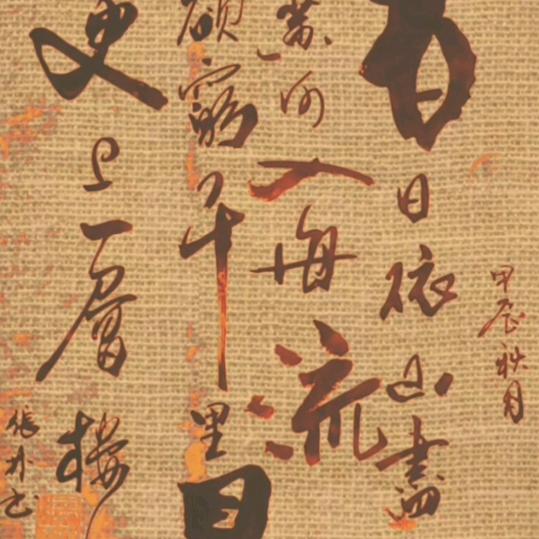 甲辰秋月
白日依山盡
黄河入海流
欲窮千里目
更上一層樓
張
书